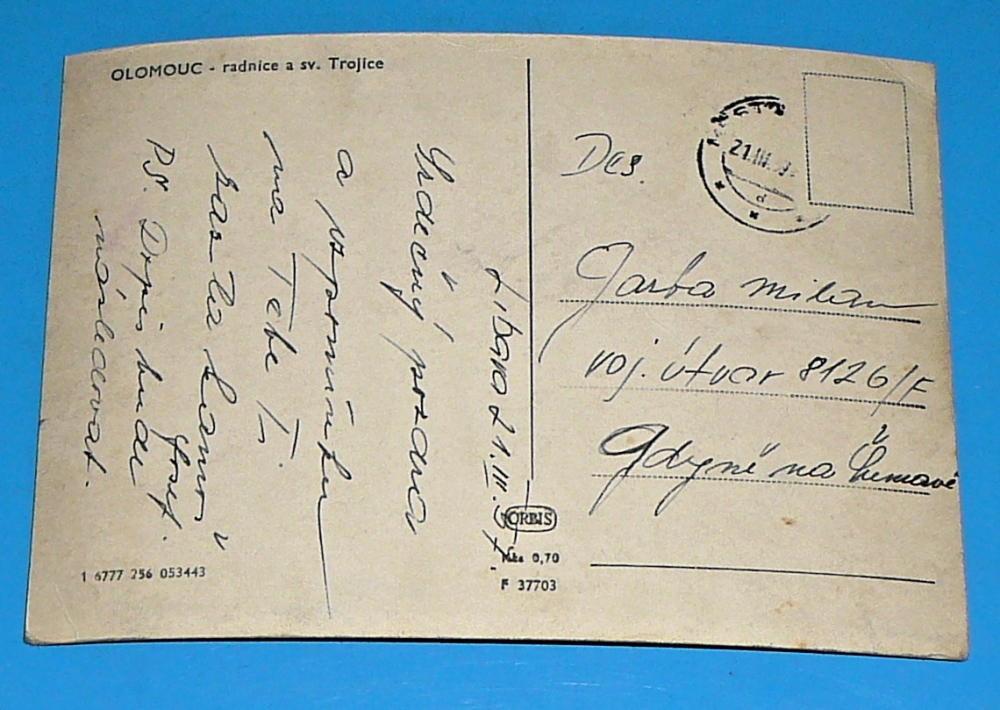 OLOMOUC - radnice a sv. Trojice
Libava 21.III.57.
Srdečný pozdrav
a vzpomínku
na Tebe Ti
Josef.
PS. Dopis bude
následovat.
1 6777 256 053443
ORBIS
Kčs 0,70
F 37703
21.III.
Des.
Garba Milan
voj. útvar 8126/F
Gdyně na Šumavě